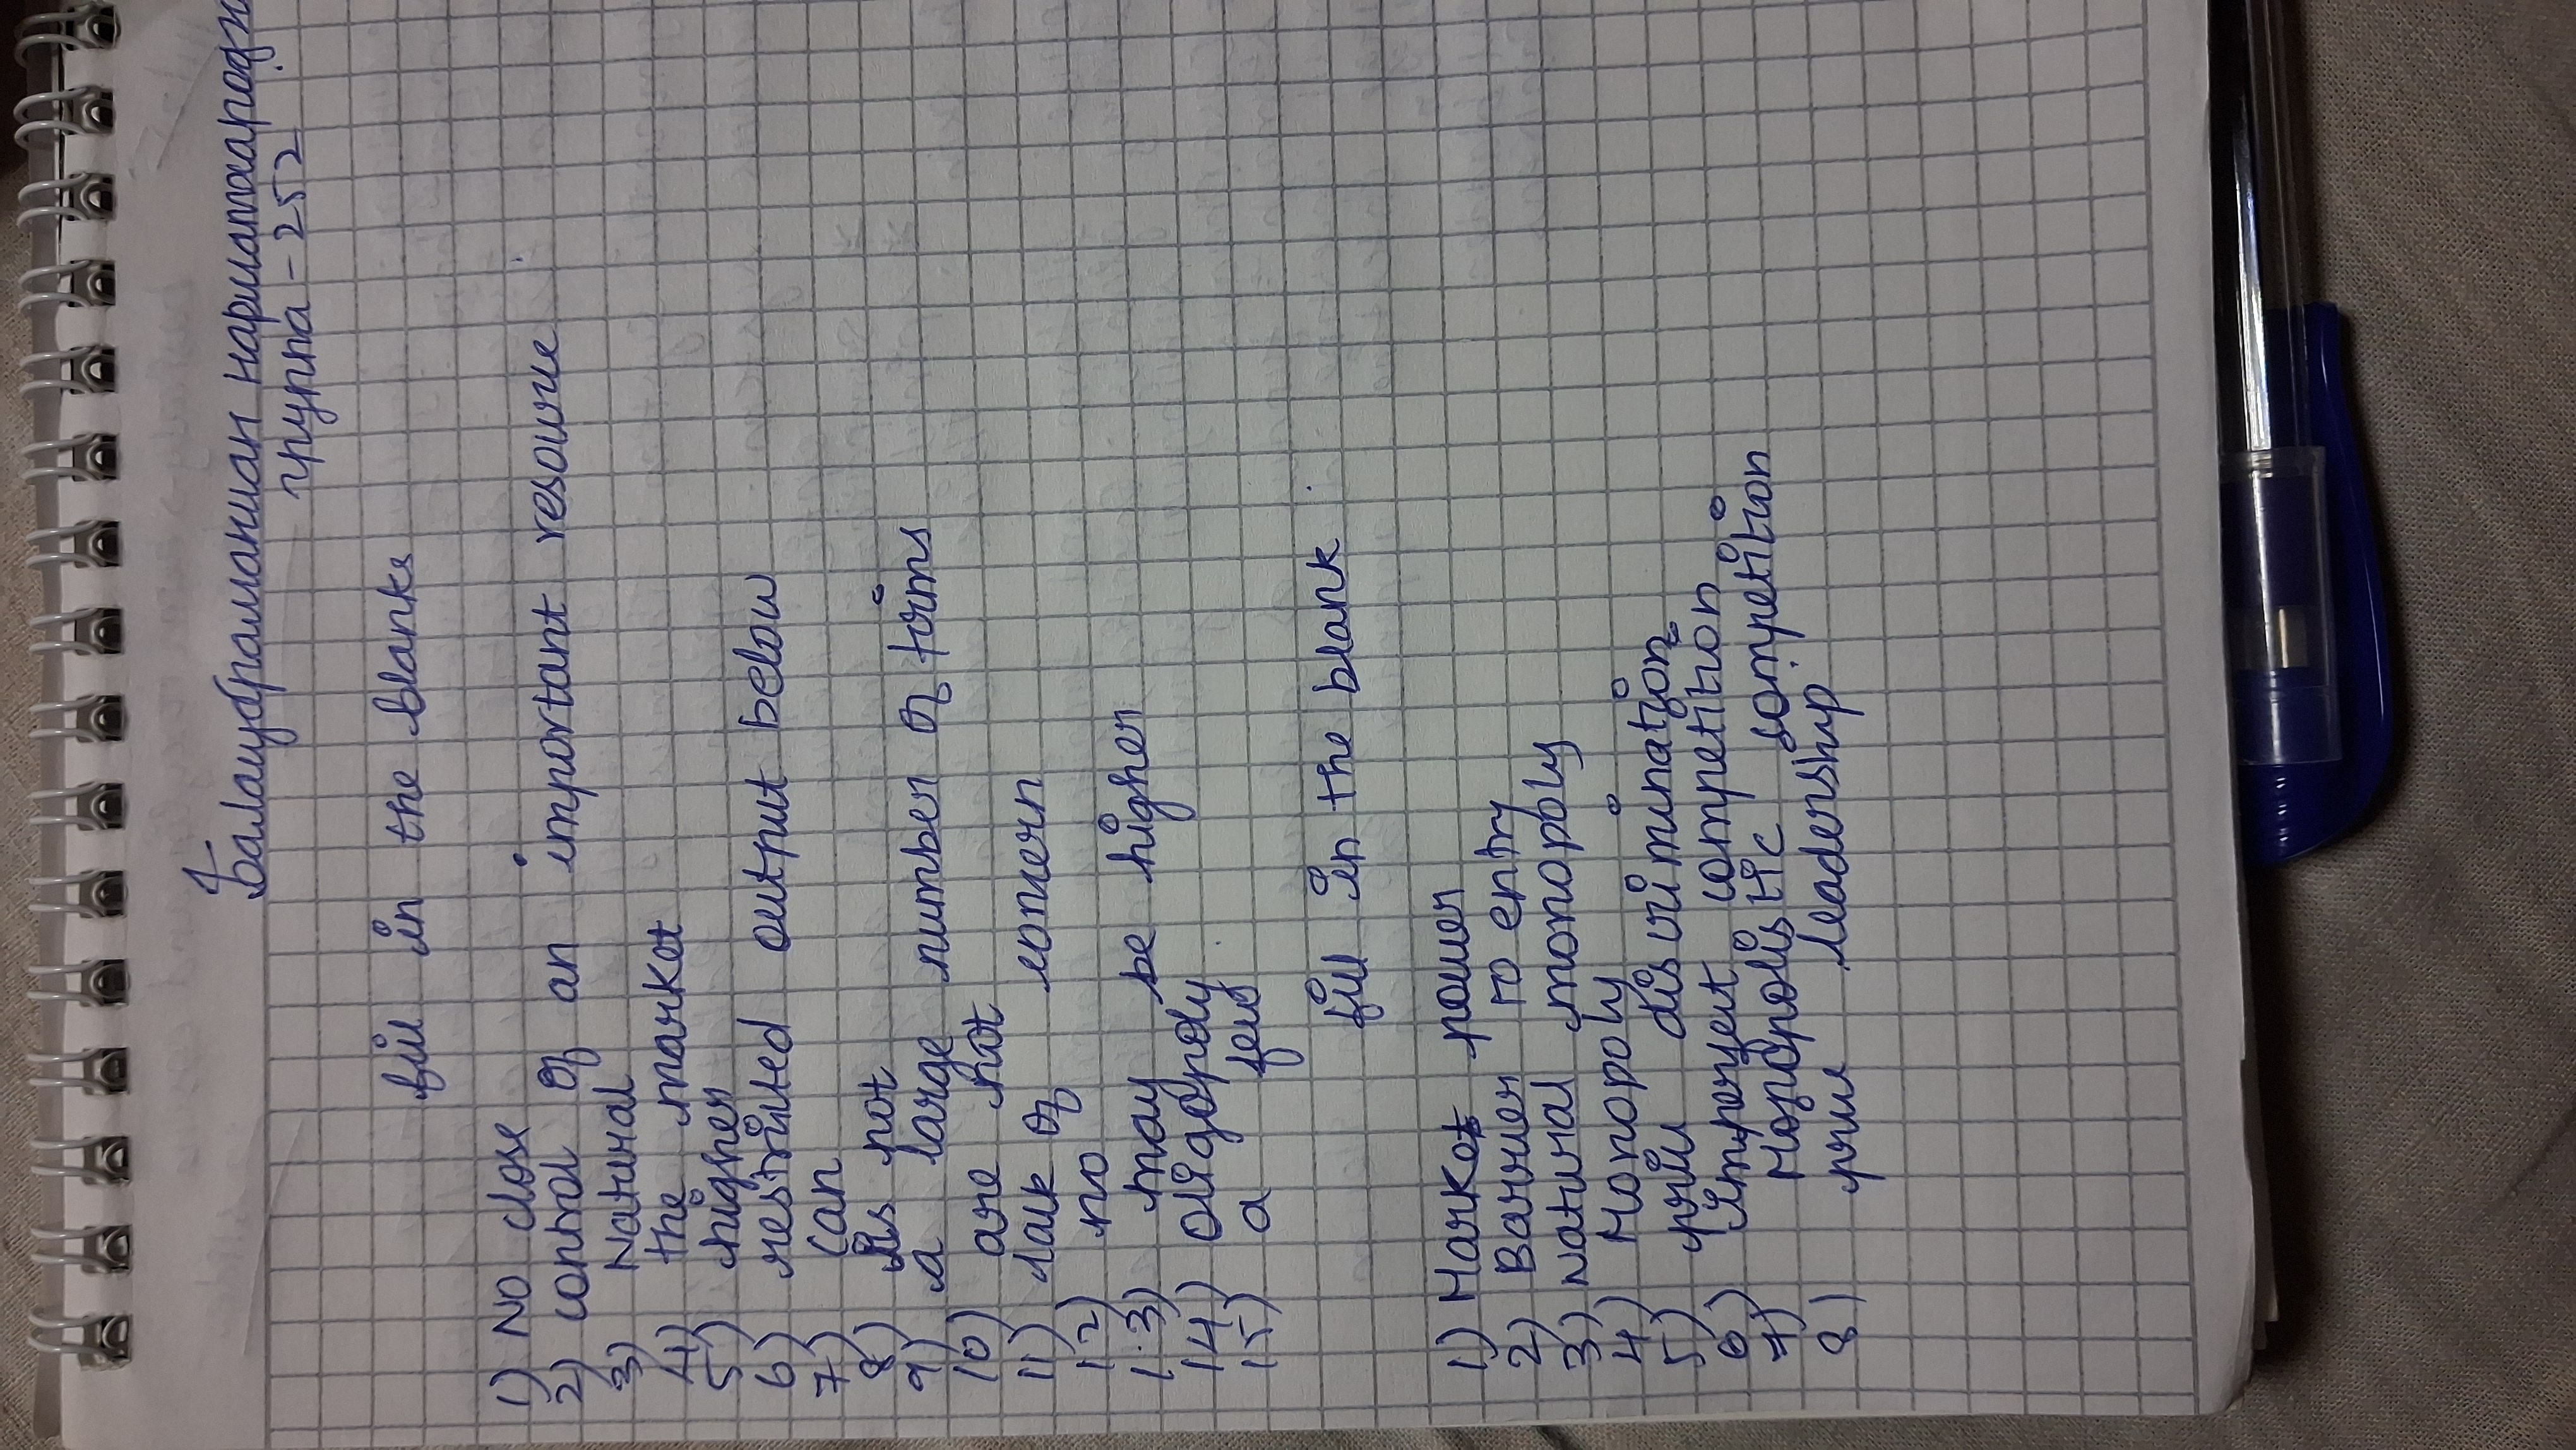 Балаубраманиан нариматокароджк
группа - 252
fill in the blanks
1) No close
2) control of an important resource
3) Natural
4) the market
5) higher
6) restricted output below
7) can
8) is not
9) a large number of firms
10) are not
11) lack of concern
12) no
13) may be higher
14) oligopoly
15) a few
fill in the blank
1) Market power
2) Barrier to entry
3) Natural monopoly
4) Monopoly
5) price discrimination
6) imperfect competition
7) Monopolistic competition
8) price leadership